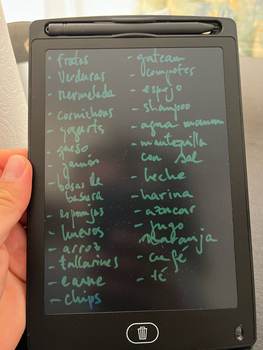 - frutas
- verduras
- mermelada
- cornichons
- yogurts
queso
- jamón
- bolsas de
basura
- esponjas
- huevos
- arroz
- tallarines
- carne
- chips
- gateau
- compotes
- espejo
- shampoo
- agua
- mantequilla
con sal
- leche
- harina
- azucar
- jugo
naranja
- café
- té